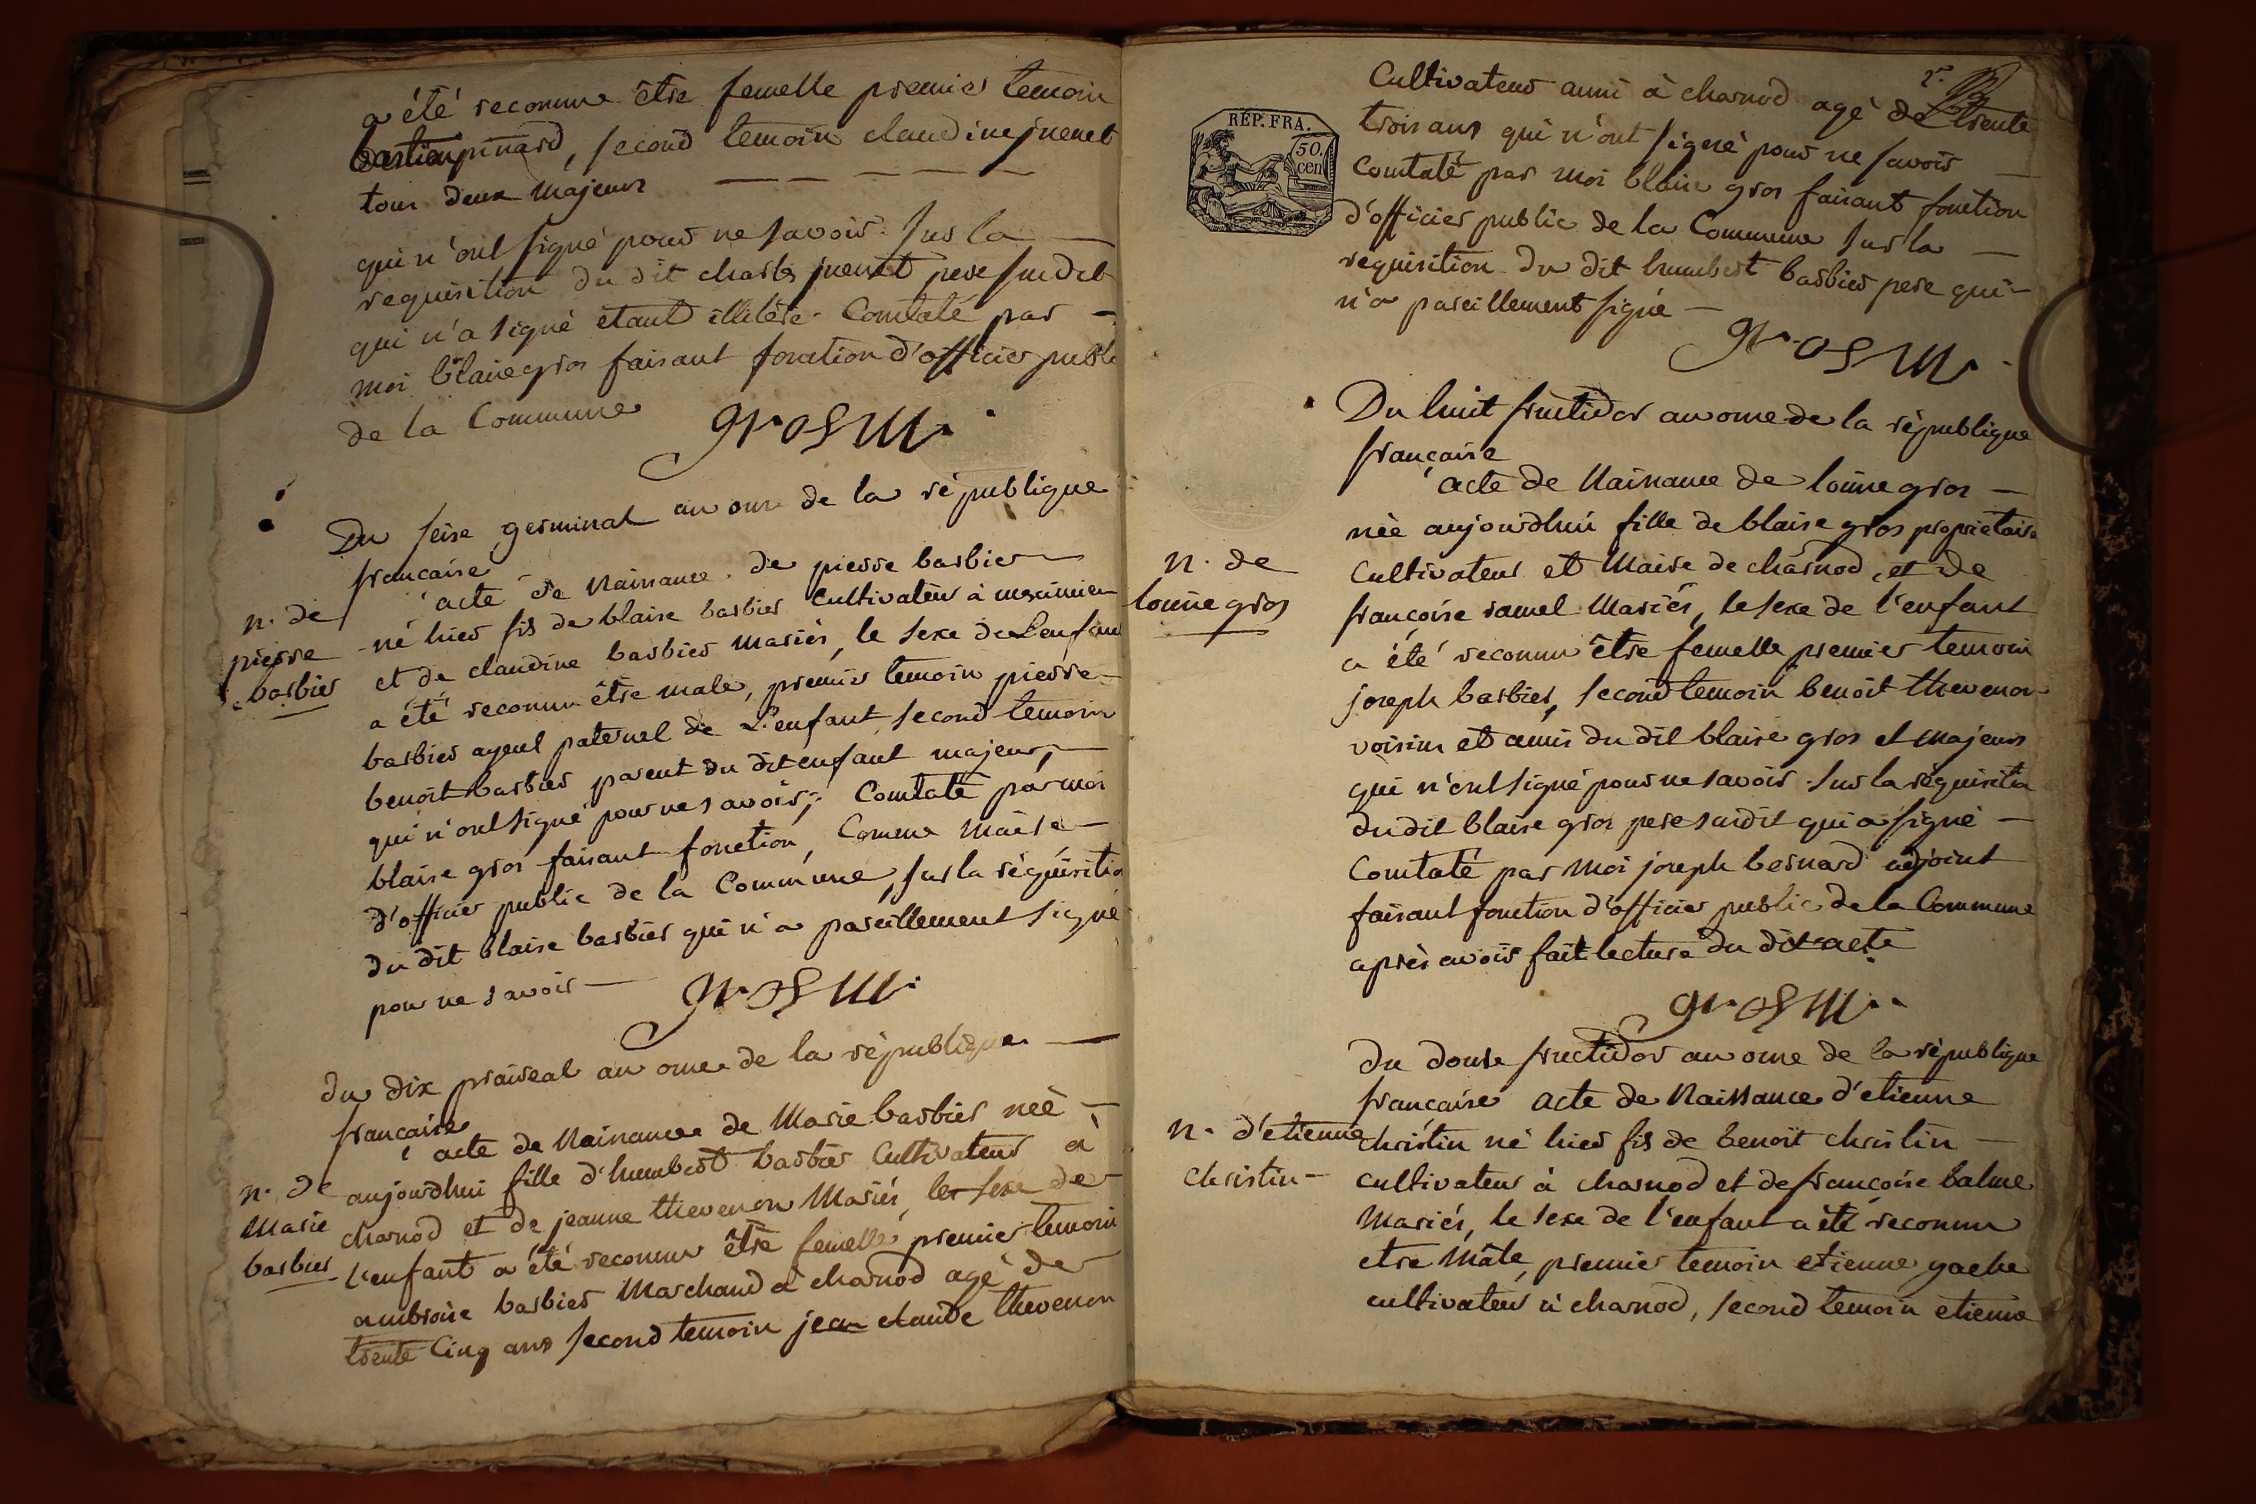 a été reconnue être femelle premier temoin
bastien pinard, second temoin claudine juenet
tous deux majeurs
qui n'ont signé pour ne savoir. sur la
requisition du dit charles juenet pere susdit
qui n'a signé etant illitére. Constaté par
moi blaise gros faisant fonction d'officier public
de la Commune
gros M.
Du seise germinal an onze de la république
francaise
acte de Naissance de pierre barbier
n. de
pierre
barbier
né hier fils de blaise barbier cultivateur à meximieu
et de claudine barbier mariés, le sexe de L'enfant
a été reconnu être male, premier temoin pierre
barbier ayeul paternel de L'enfant, second temoin
benoit barbier parent du dit enfant majeur,
qui n'ont signé pour ne savoir, Constaté par moi
blaise gros faisant fonction, Comme maire
d'officier public de la Commune, sur la réquisition
du dit blaise barbier qui n'a pareillement signé
pour ne savoir
gros M.
du dix praireal an onze de la république
francaise
acte de Naissance de Marie barbier neè
n. de
Marie
barbier
aujourdhui fille d'humbert barbier Cultivateur à
charnod et de jeanne thevenon Mariés, le sexe de
l'enfant a été reconnu être femelle premier temoin
ambroise barbier Marchand à charnod agé de
trente Cinq ans second temoin jean claude thevenon
RÉP. FRA.
50.
cen
Cultivateur aussi à charnod agé de trente
trois ans qui n'ont signé pour ne savoir
Constaté par moi blaise gros faisant fonction
d'officier public de la Commune sur la
requisition du dit humbert barbier pere qui
n'a pareillement signé
gros M.
Du huit fructidor an onze de la république
française
acte de Naissance de louise gros
n. de
louise gros
née aujourdhui fille de blaise gros proprietaire
Cultivateur et Maire de charnod, et de
françoise ramel Mariés, le sexe de l'enfant
a été reconnu être femelle premier temoin
joseph barbier, second temoin benoit thevenon
voisins et amis du dit blaise gros et majeurs
qui n'ont signé pour ne savoir. sur la réquisition
du dit blaise gros pere susdit qui a signé
Constaté par moi joseph bernard adjoint
faisant fonction d'officier public de la Commune
après avoir fait lecture du dit acte
gros M.
du douse fructidor an onze de la république
francaise acte de Naissance d'etienne
n. d'etienne
christin
christin né hier fils de benoit christin
cultivateur à charnod et de francoise balme
Mariés, le sexe de l'enfant a été reconnu
etre Mâle, premier temoin etienne gache
cultivateur à charnod, second temoin etienne